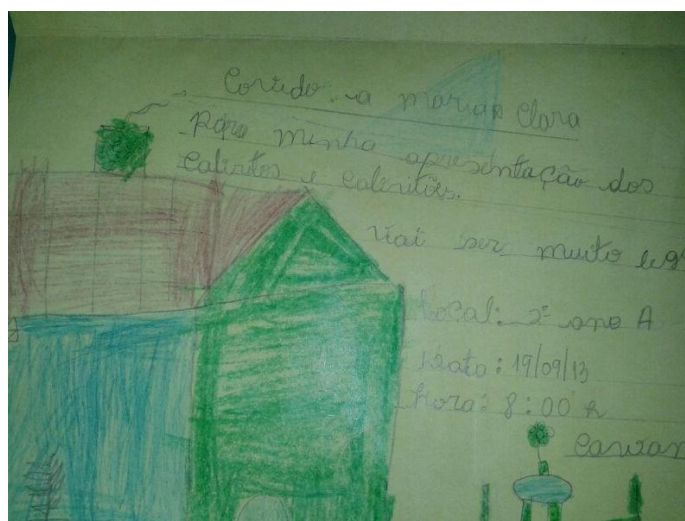 Convido a Maria Clara
para minha apresentação dos
Cabintos e Cabintões.
Vai ser muito leg
Local: 2º ano A
Data: 19/09/13
hora: 8:00 h